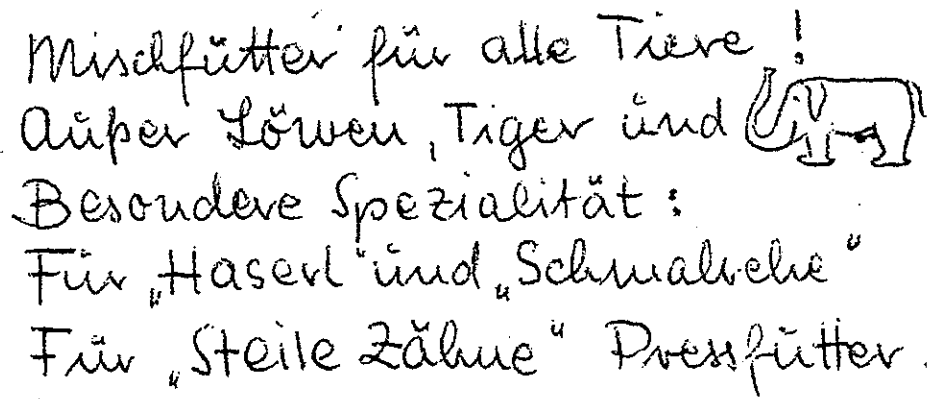 Mischfutter für alle Tiere!
Außer Löwen, Tiger und
Besondere Spezialität:
Für „Haserl" und „Schmalrehe"
Für „Steile Zähne" Pressfutter.